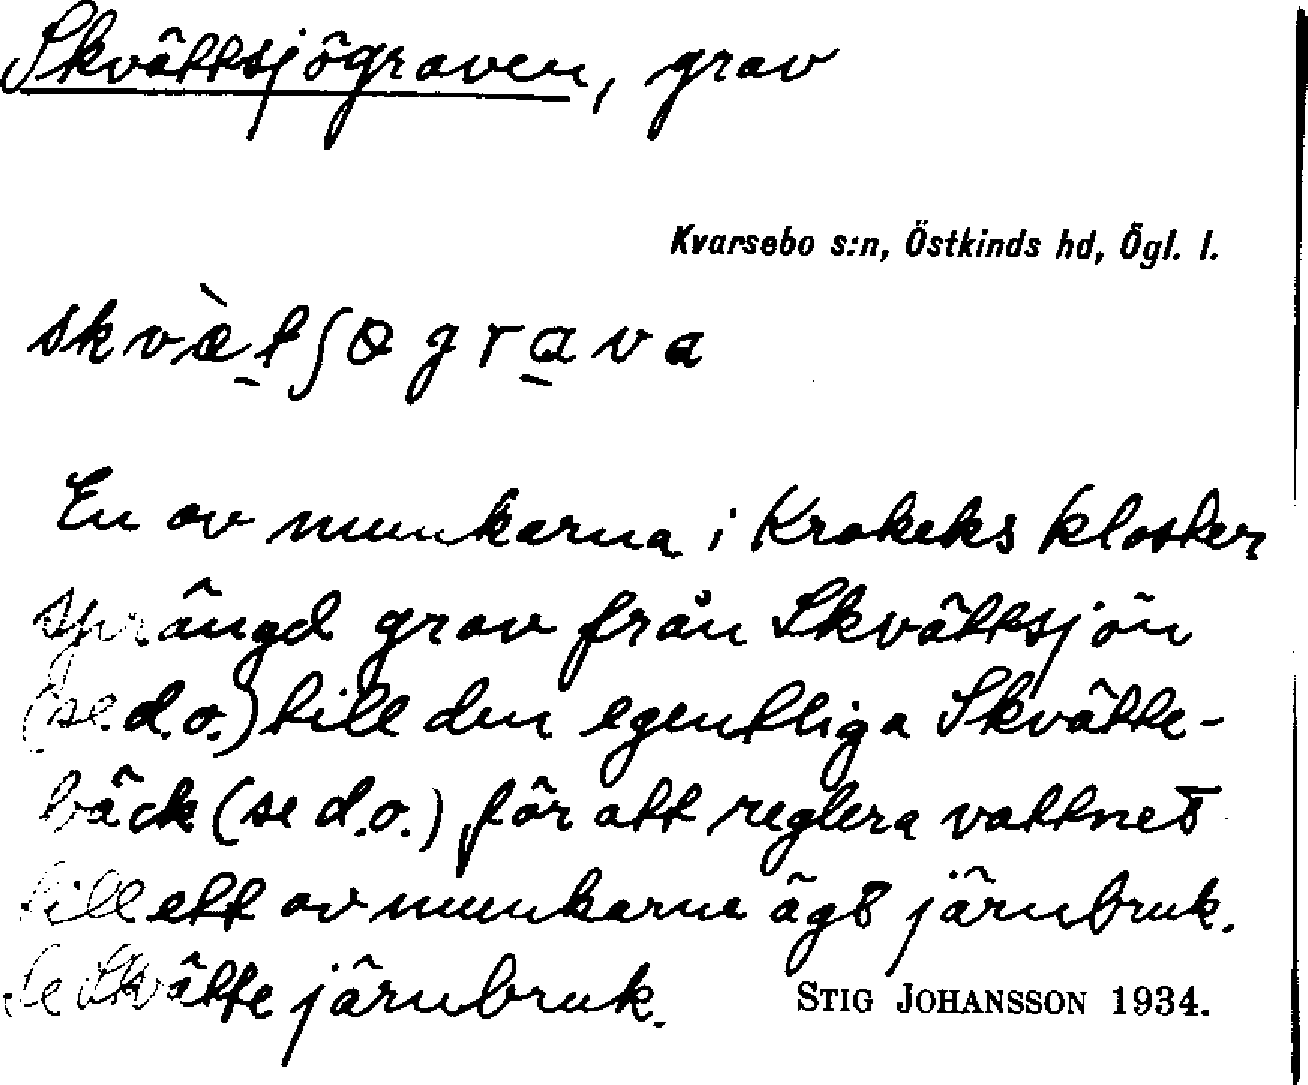 Skvättsjögraven, grav
Kvarsebo s:n, Östkinds hd, Ögl. l.
skvæ̀tʃögrava
En av munkarna i Krokeks kloster
sprängd grav från Skvättsjön
(se d.o.) till den egentliga Skvätte-
bäck (se d.o.) för att reglera vattnet
till ett av munkarna ägt järnbruk.
Se Skvätte järnbruk.
STIG JOHANSSON 1934.